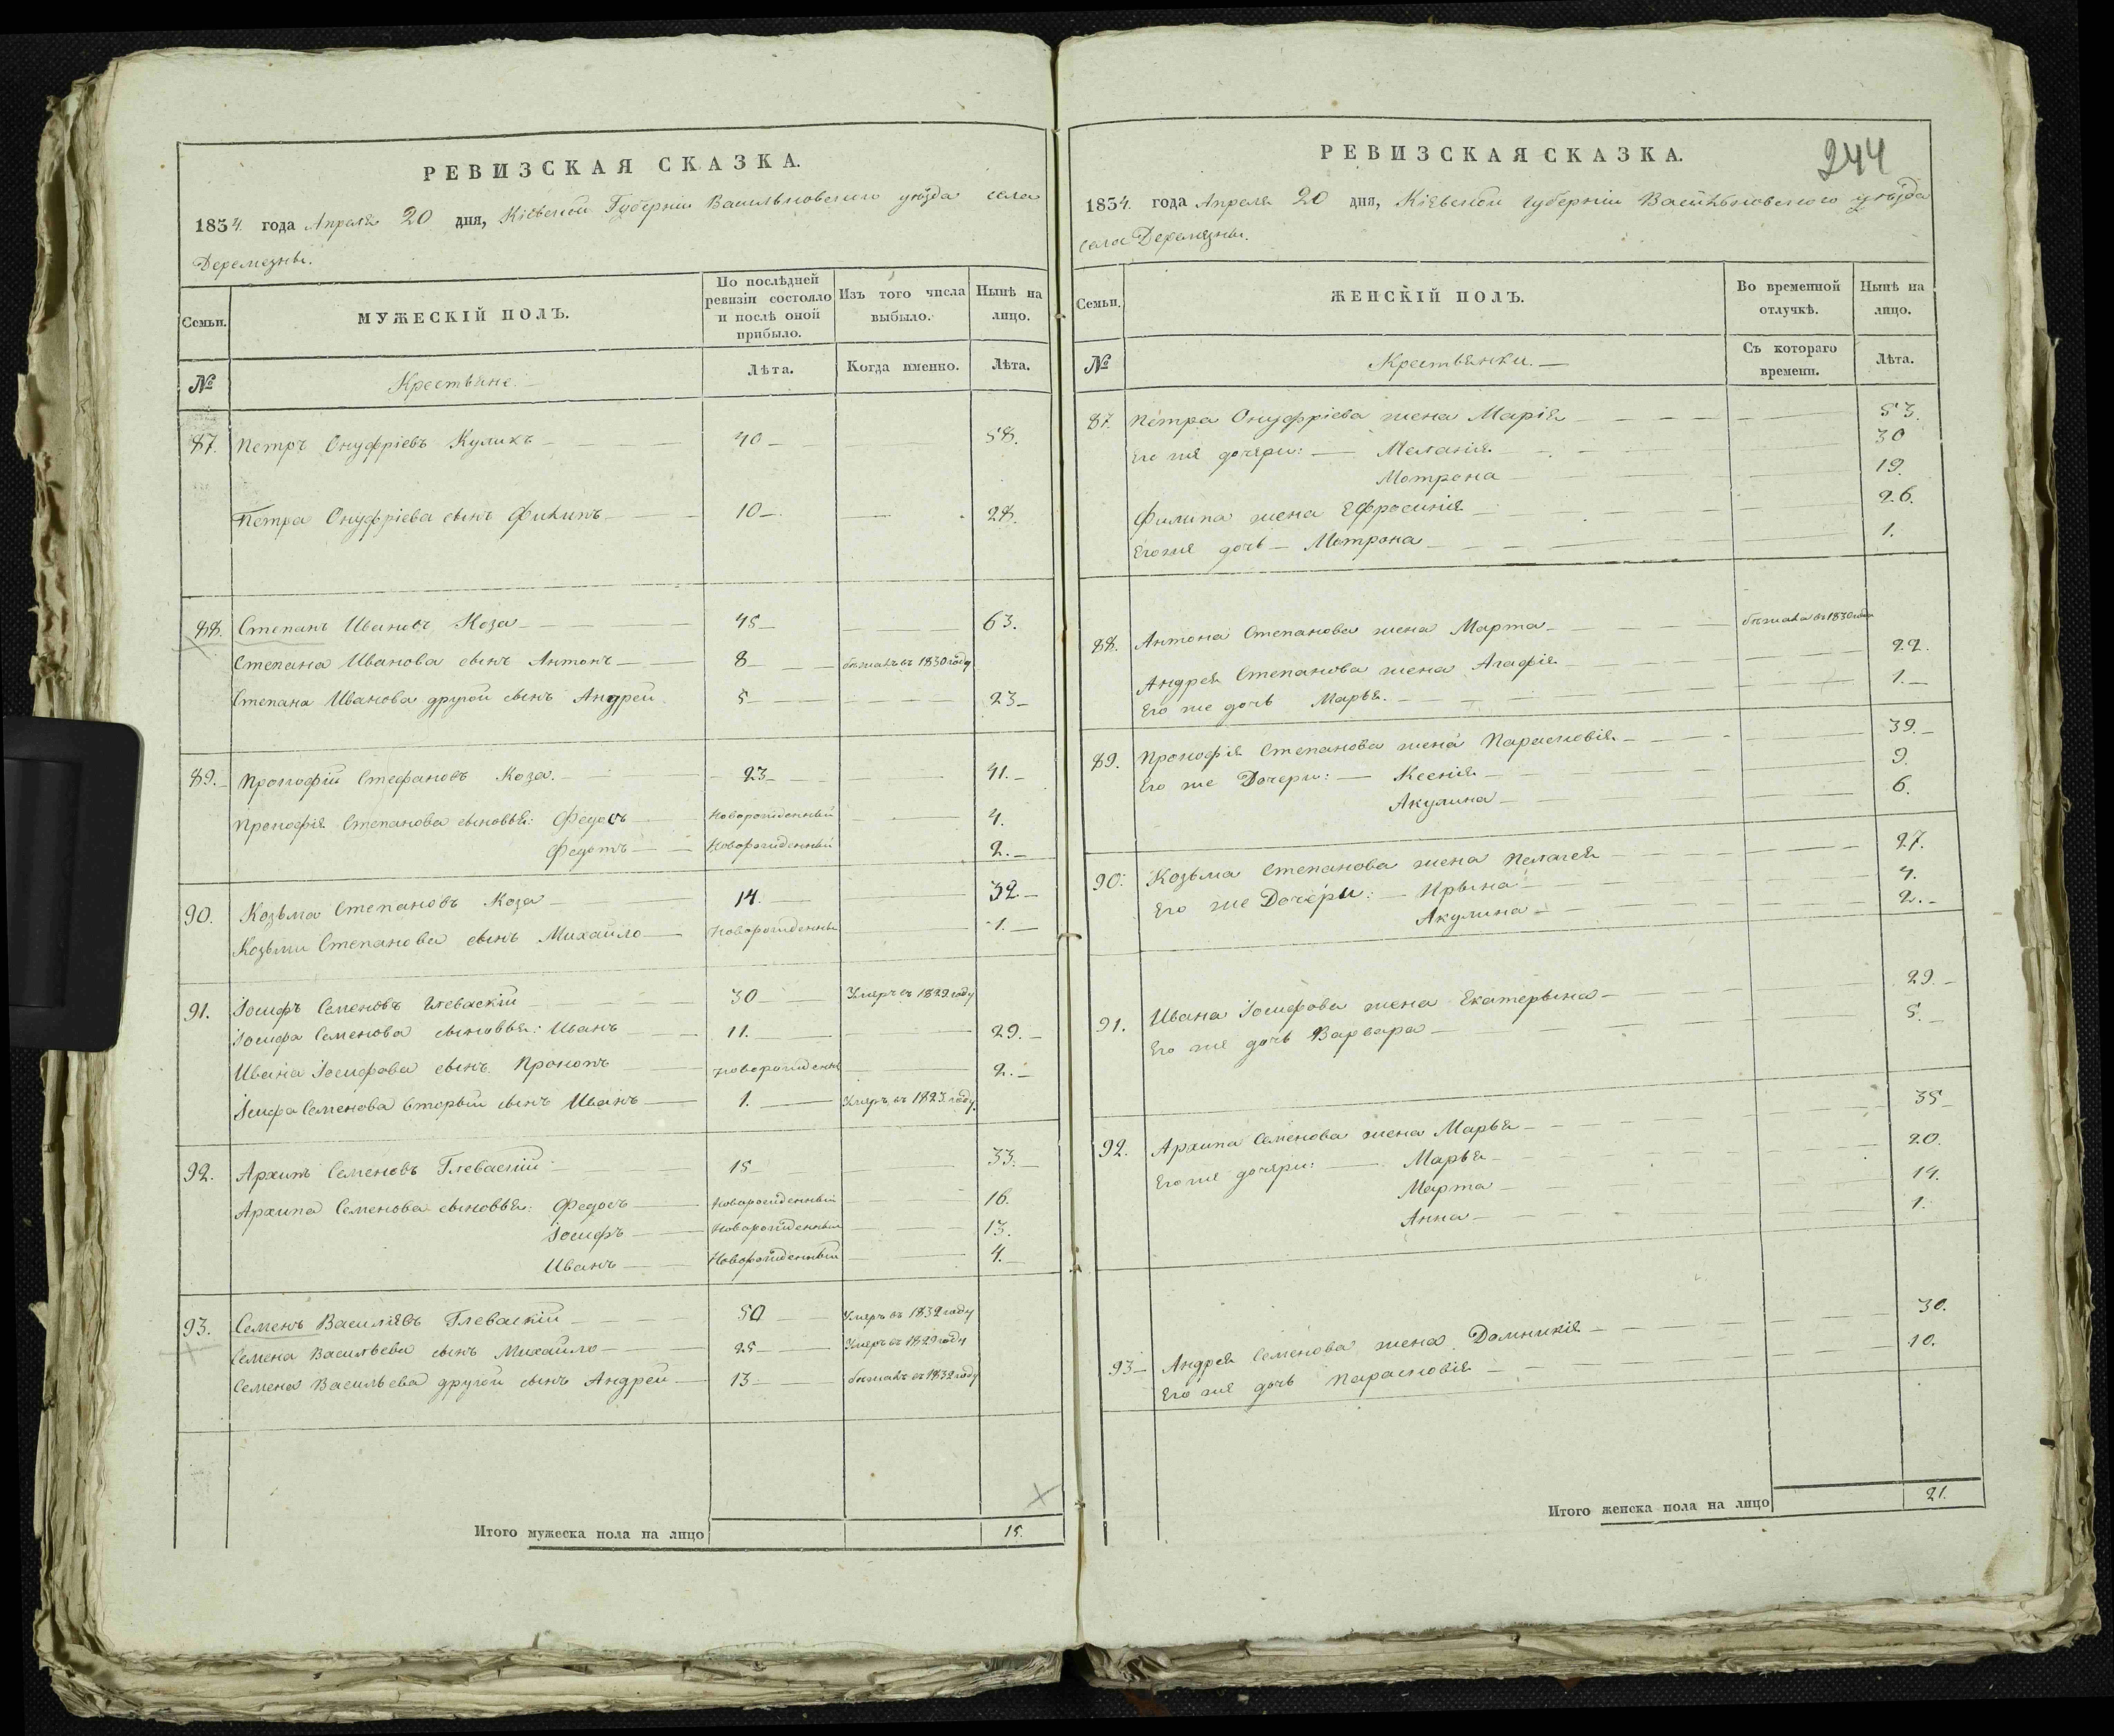 РЕВИЗСКАЯ СКАЗКА.
1834. года Апреля 20 дня, Кіевской Губерніи Васильковского уѣзда села
Деремезны.
Семьи.
МУЖЕСКІЙ ПОЛЪ.
По послѣдней ревизіи состояло и послѣ оной прибыло.
Изъ того числа выбыло.
Нынѣ на лицо.
№
Крестьяне.
Лѣта.
Когда именно.
Лѣта.
87. Петръ Онуфріевъ Куликъ — 40 — 58.
Петра Онуфріева сынъ Филипъ — 10 — 28.
88. Степанъ Ивановъ Коза — 45 — 63.
Степана Иванова сынъ Антонъ — 8 — бѣжалъ въ 1830 году
Степана Иванова другой сынъ Андрей 5 — 23 —
89. Прокофій Стефановъ Коза. — 23 — 41. —
Прокофія Степанова сыновья: Федосъ — Новорожденный — 4.
Федотъ — Новорожденный — 2. —
90. Козьма Степановъ Коза — 14. — 32 —
Козьми Степанова сынъ Михайло — Новорожденны — 1. —
91. Іосифъ Семеновъ Глеваскій — 30 — Умеръ въ 1829 году
Іосифа Семенова сыновья: Иванъ — 11. — 29. —
Ивана Іосифова сынъ Прокопъ — новорожденны — 2. —
Іосифа Семенова вторый сынъ Иванъ — 1. — Умеръ въ 1823. году.
92. Архипъ Семеновъ Глеваскій — 15 — 33. —
Архипа Семенова сыновья: Федосъ — Новорожденный — 16.
Іосифъ — Новорожденный — 13.
Иванъ — Новорожденный — 4. —
93. Семенъ Василіевъ Глеваскій — 50 — Умеръ въ 1832 году
Семена Васильева сынъ Михайло — 25 — Умеръ въ 1829 году
Семена Васильева другой сынъ Андрей — 13 — бѣжалъ въ 1832 году
Итого мужеска пола на лицо 15.
244
РЕВИЗСКАЯ СКАЗКА.
1834. года Апреля 20 дня, Кіевской губерніи Васильковского уѣзда
села Деремезны.
Семьи.
ЖЕНСКІЙ ПОЛЪ.
Во временной отлучкѣ.
Нынѣ на лицо.
№
Крестьянки. —
Съ котораго времени.
Лѣта.
87. Петра Онуфріева жена Марія — 53.
Его же дочери: — Меланія — 30
Мотрона — 19.
Филипа жена Ефросинія — 26.
Его же дочь — Мотрона — 1.
88. Антона Степанова жена Марта — бѣжала въ 1830 года
Андрея Степанова жена Агафія — 22.
Его же дочь Марья. — 1. —
89. Прокофія Степанова жена Парасковія — 39. —
Его же Дочери: — Ксенія — 9.
Акулина — 6.
90. Козьма Степанова жена Пелагея — 27.
Его же Дочери: — Ирына — 4.
Акулина — 2. —
91. Ивана Іосифова жена Екатерына — 29. —
Его же дочь Варвара — 5. —
92. Архипа Семенова жена Марья — 35 —
Его же дочери: — Марья — 20.
Марта — 14.
Анна — 1.
93 — Андрея Семенова жена Домникія — 30.
Его же дочь Парасковія — 10.
Итого женска пола на лицо 21.